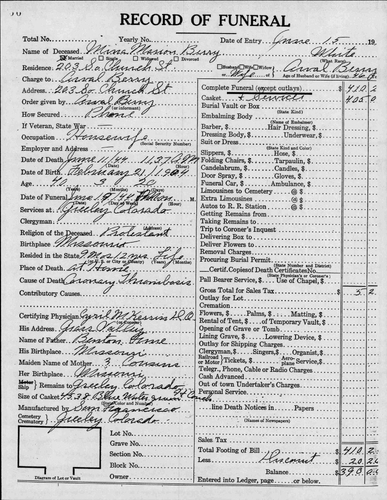 RECORD OF FUNERAL
Total No. Yearly No. Date of Entry June 15 19
Name of Deceased Mina Marion Berry White
Married Single Widowed Divorced (What Race)
Residence 203 So. Church St Husband Wife or Widow of Orval Berry
Charge to Orval Berry Age of Husband or Wife (if living)
Address 203 So. Church St
Order given by Orval Berry
How Secured Phone
If Veteran, State War
Occupation Housewife
Employer and Address
Date of Death June 11/44 11:37 P.M.
Date of Birth February 21, 1904
Age 40 3 20
Date of Funeral June
Services at Greeley Colorado
Clergyman
Religion of the Deceased Protestant
Birthplace Missouri
Resided in the State 9 Mos
Place of Death at Home
Cause of Death Coronary Thrombosis
Contributory Causes
Certifying Physician Cyril M.
His Address Grass Valley
Name of Father Benton
His Birthplace Missouri
Maiden Name of Mother ? Cousins
Her Birthplace Missouri
Ship Remains to Greeley Colorado
Size of Casket
Manufactured by San Francisco
Cemetery Crematory Greeley Colorado
Lot No.
Grave No.
Section No.
Block No.
Owner
Diagram of Lot or Vault
Complete Funeral (except outlays) $ 410 2
Casket & Services 405 0
Burial Vault or Box
Embalming Body
(State Kind)
Barber, $ Hair Dressing, $
Dressing Body, $ Underwear, $
Suit or Dress
(State Kind and Color)
Slippers, $ Hose, $
Folding Chairs, $ Tarpaulin, $
Candelabrum, $ Candles, $
Door Spray, $ Gloves, $
Funeral Car, $ Ambulance, $
Limousines to Cemetery @ $
Extra Limousines @ $
Autos to R. R. Station @ $
Getting Remains from
Taking Remains to
Trip to Coroner's Inquest
Delivering Box to
Deliver Flowers to
Removal Charges
Procuring Burial Permit
(State Number and District)
Certif. Copies of Death Certificate No.
Pall Bearer Service, $ Use of Chapel, $
Gross Total for Sales Tax $ 5 2
Outlay for Lot
Cremation
Flowers, $ Palms, $ Matting, $
Rental of Tent, $ of Temporary Vault, $
Opening of Grave or Tomb
Lining Grave, $ Lowering Device, $
Outlay for Shipping Charges
Clergyman, $ Singers, $ Organist, $
Telegr., Phone, Cable or Radio Charges
Cash Advanced
Out of town Undertaker's Charges
Personal Service
line Death Notices in Papers
(Names of Newspapers)
Sales Tax
Total Footing of Bill $ 410 2
Less Discount 20 26
Balance $ 390 0
Entered into Ledger, page